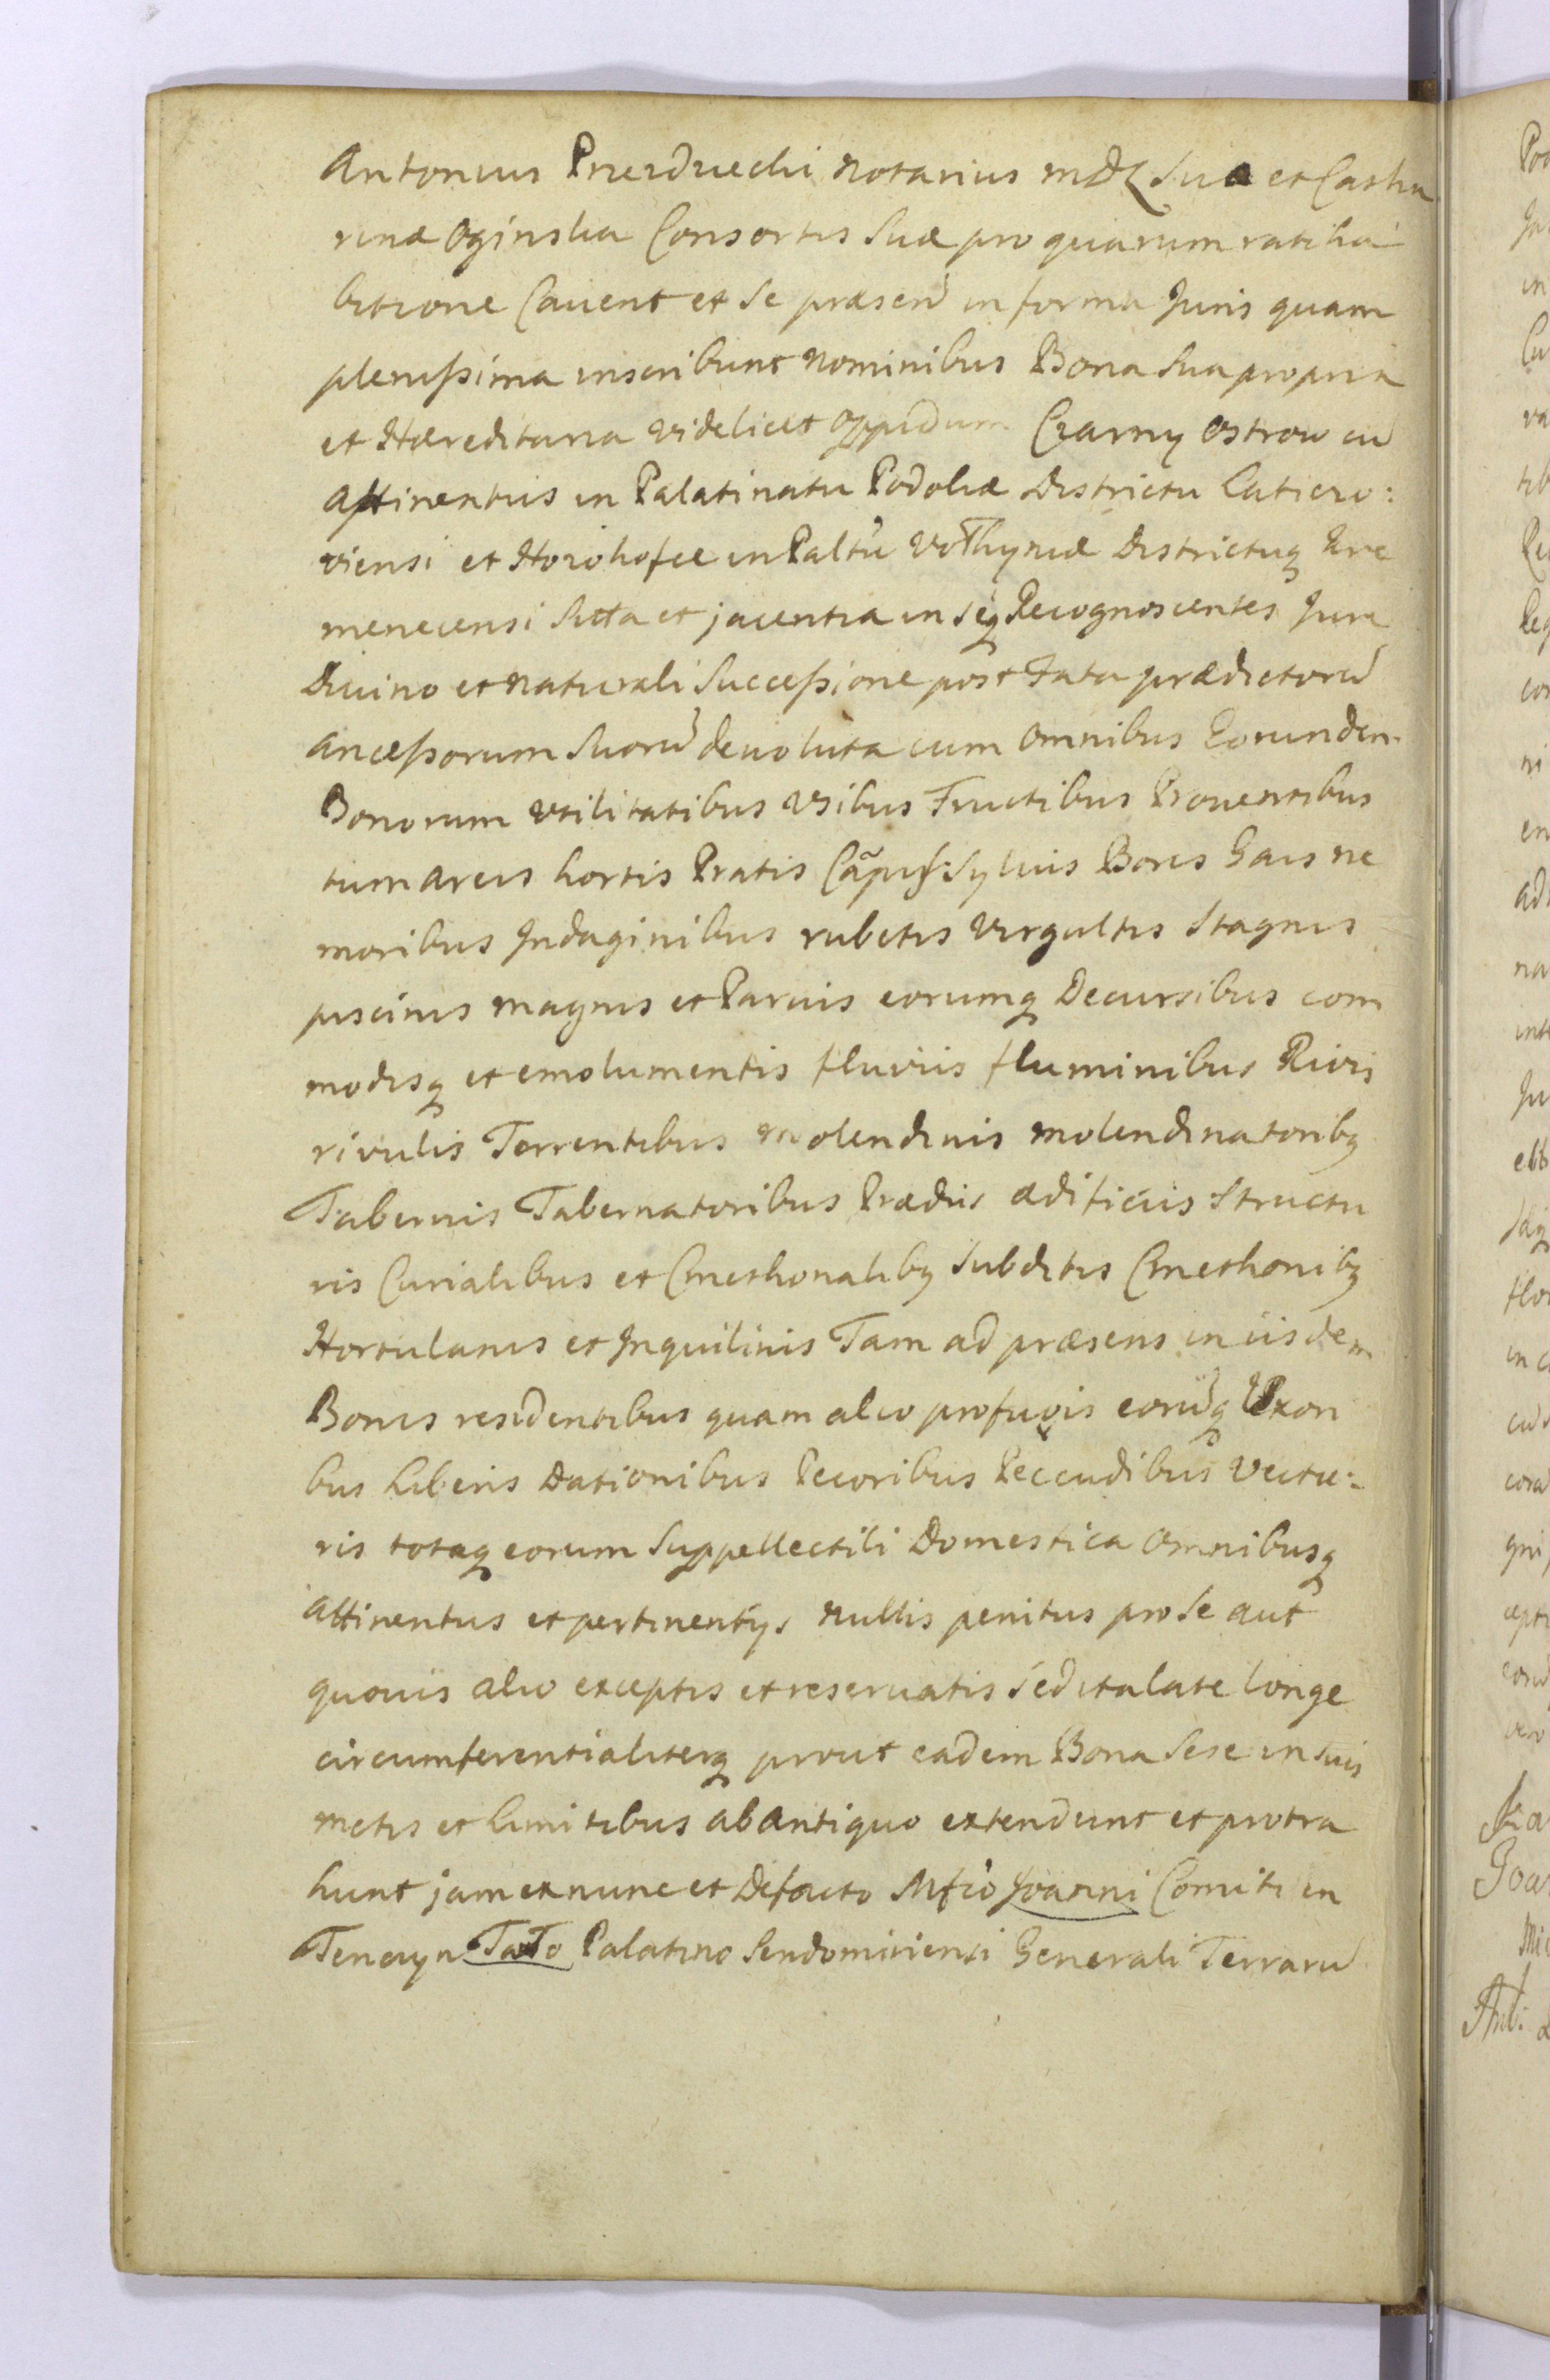 Antonius Przezdziecki Notarius MDL Sua et Catha
rinæ Oginska Consortis Suæ pro quarum ratiha
bitione Cavent et Se præsen in forma Juris quam
plenissima inscribunt Nominibus Bona Sua propria
et Hæreditaria videlicet Oppidum Czarny Ostrow cu
Attinentiis in Palatinatu Podoliæ Districtu Laticzo:
viensi et Horohofce in Paltu Volhyniæ Districtuq Kre
menecensi Sitta et jacentia in seq Recognoscentes Jure
Divino et naturali Successione post Fata prædictoru
Ancessorum Suoru devoluta cum Omnibus Eorunden
Bonorum Utilitatibus Usibus Fructibus Proventibus
tum areis hortis Pratis Cãpis: Sylvis Boris Gais ne
moribus Indaginibus rubetis Virgultis Stagnis
piscinis magnis et Parvis eorumq Decursibus com
modisq et emolumentis fluviis fluminibus Rivis
rivulis Torrentibus molendinis molendinatoribq
Tabernis Tabernatoribus Prædiis ædificiis Structu
ris Curialibus et Cmethonalibq Subditis Cmethonibq
Hortulanis et Inquilinis Tam ad præsens in iisdem
Bonis residentibus quam alio profugis eoruq Uxori
bus Liberis Dationibus Pecoribus Peccudibus Vectu:
ris totaq eorum Suppellectili Domestica Omnibusq
Attinentiis et pertinentijs nullis penitus pro Se aut
quovis alio exceptis et reservatis Sed ita late longe
circumferentialiterq prout eadem Bona Sese in Suis
metis et limitibus ab antiquo extendunt et protra
hunt jam ex nunc et Defacto Mfco Joanni Comiti in
Tenczyn TaTo Palatino Sendomiriensi Generali Terraru